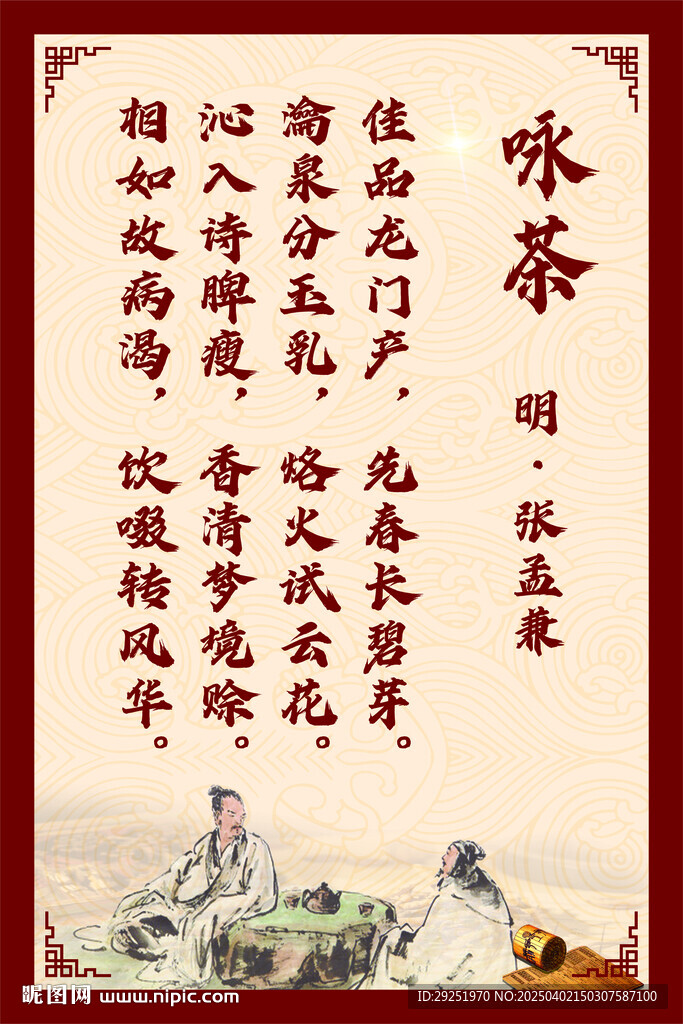 咏茶
明·张孟兼
佳品龙门产，先春长碧芽。
瀹泉分玉乳，烙火试云花。
沁入诗脾瘦，香清梦境赊。
相如故病渴，饮啜转风华。
昵图网 www.nipic.com
ID:29251970 NO:20250402150307587100